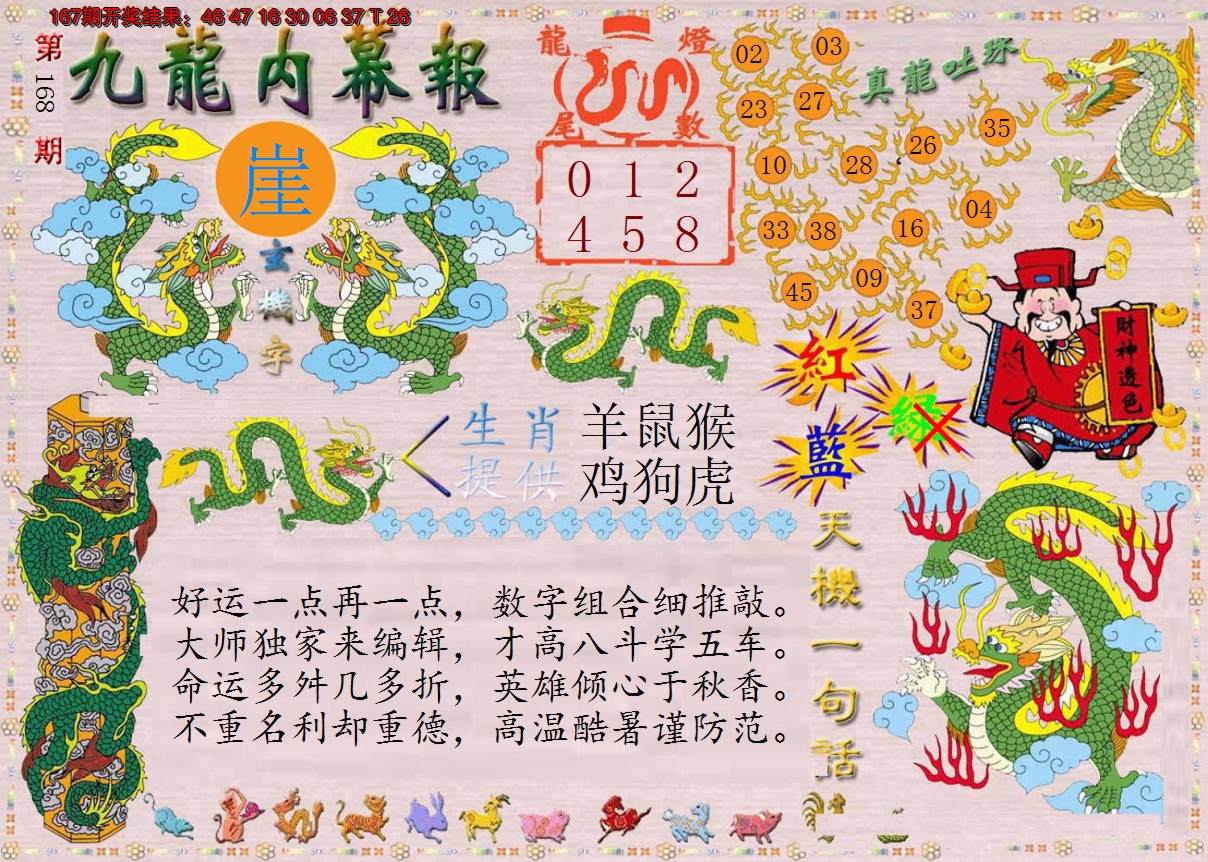 167期开奖结果：46 47 16 30 06 37 T 26
第168期
九龍内幕報
崖
玄機字
龍燈
尾數
0 1 2
4 5 8
真龍吐珠
02 03
23 27
10 28 26 35
33 38 16 04
45 09 37
財神透色
紅
綠
藍
生肖 羊鼠猴
提供 鸡狗虎
天機一句話
好运一点再一点，数字组合细推敲。
大师独家来编辑，才高八斗学五车。
命运多舛几多折，英雄倾心于秋香。
不重名利却重德，高温酷暑谨防范。